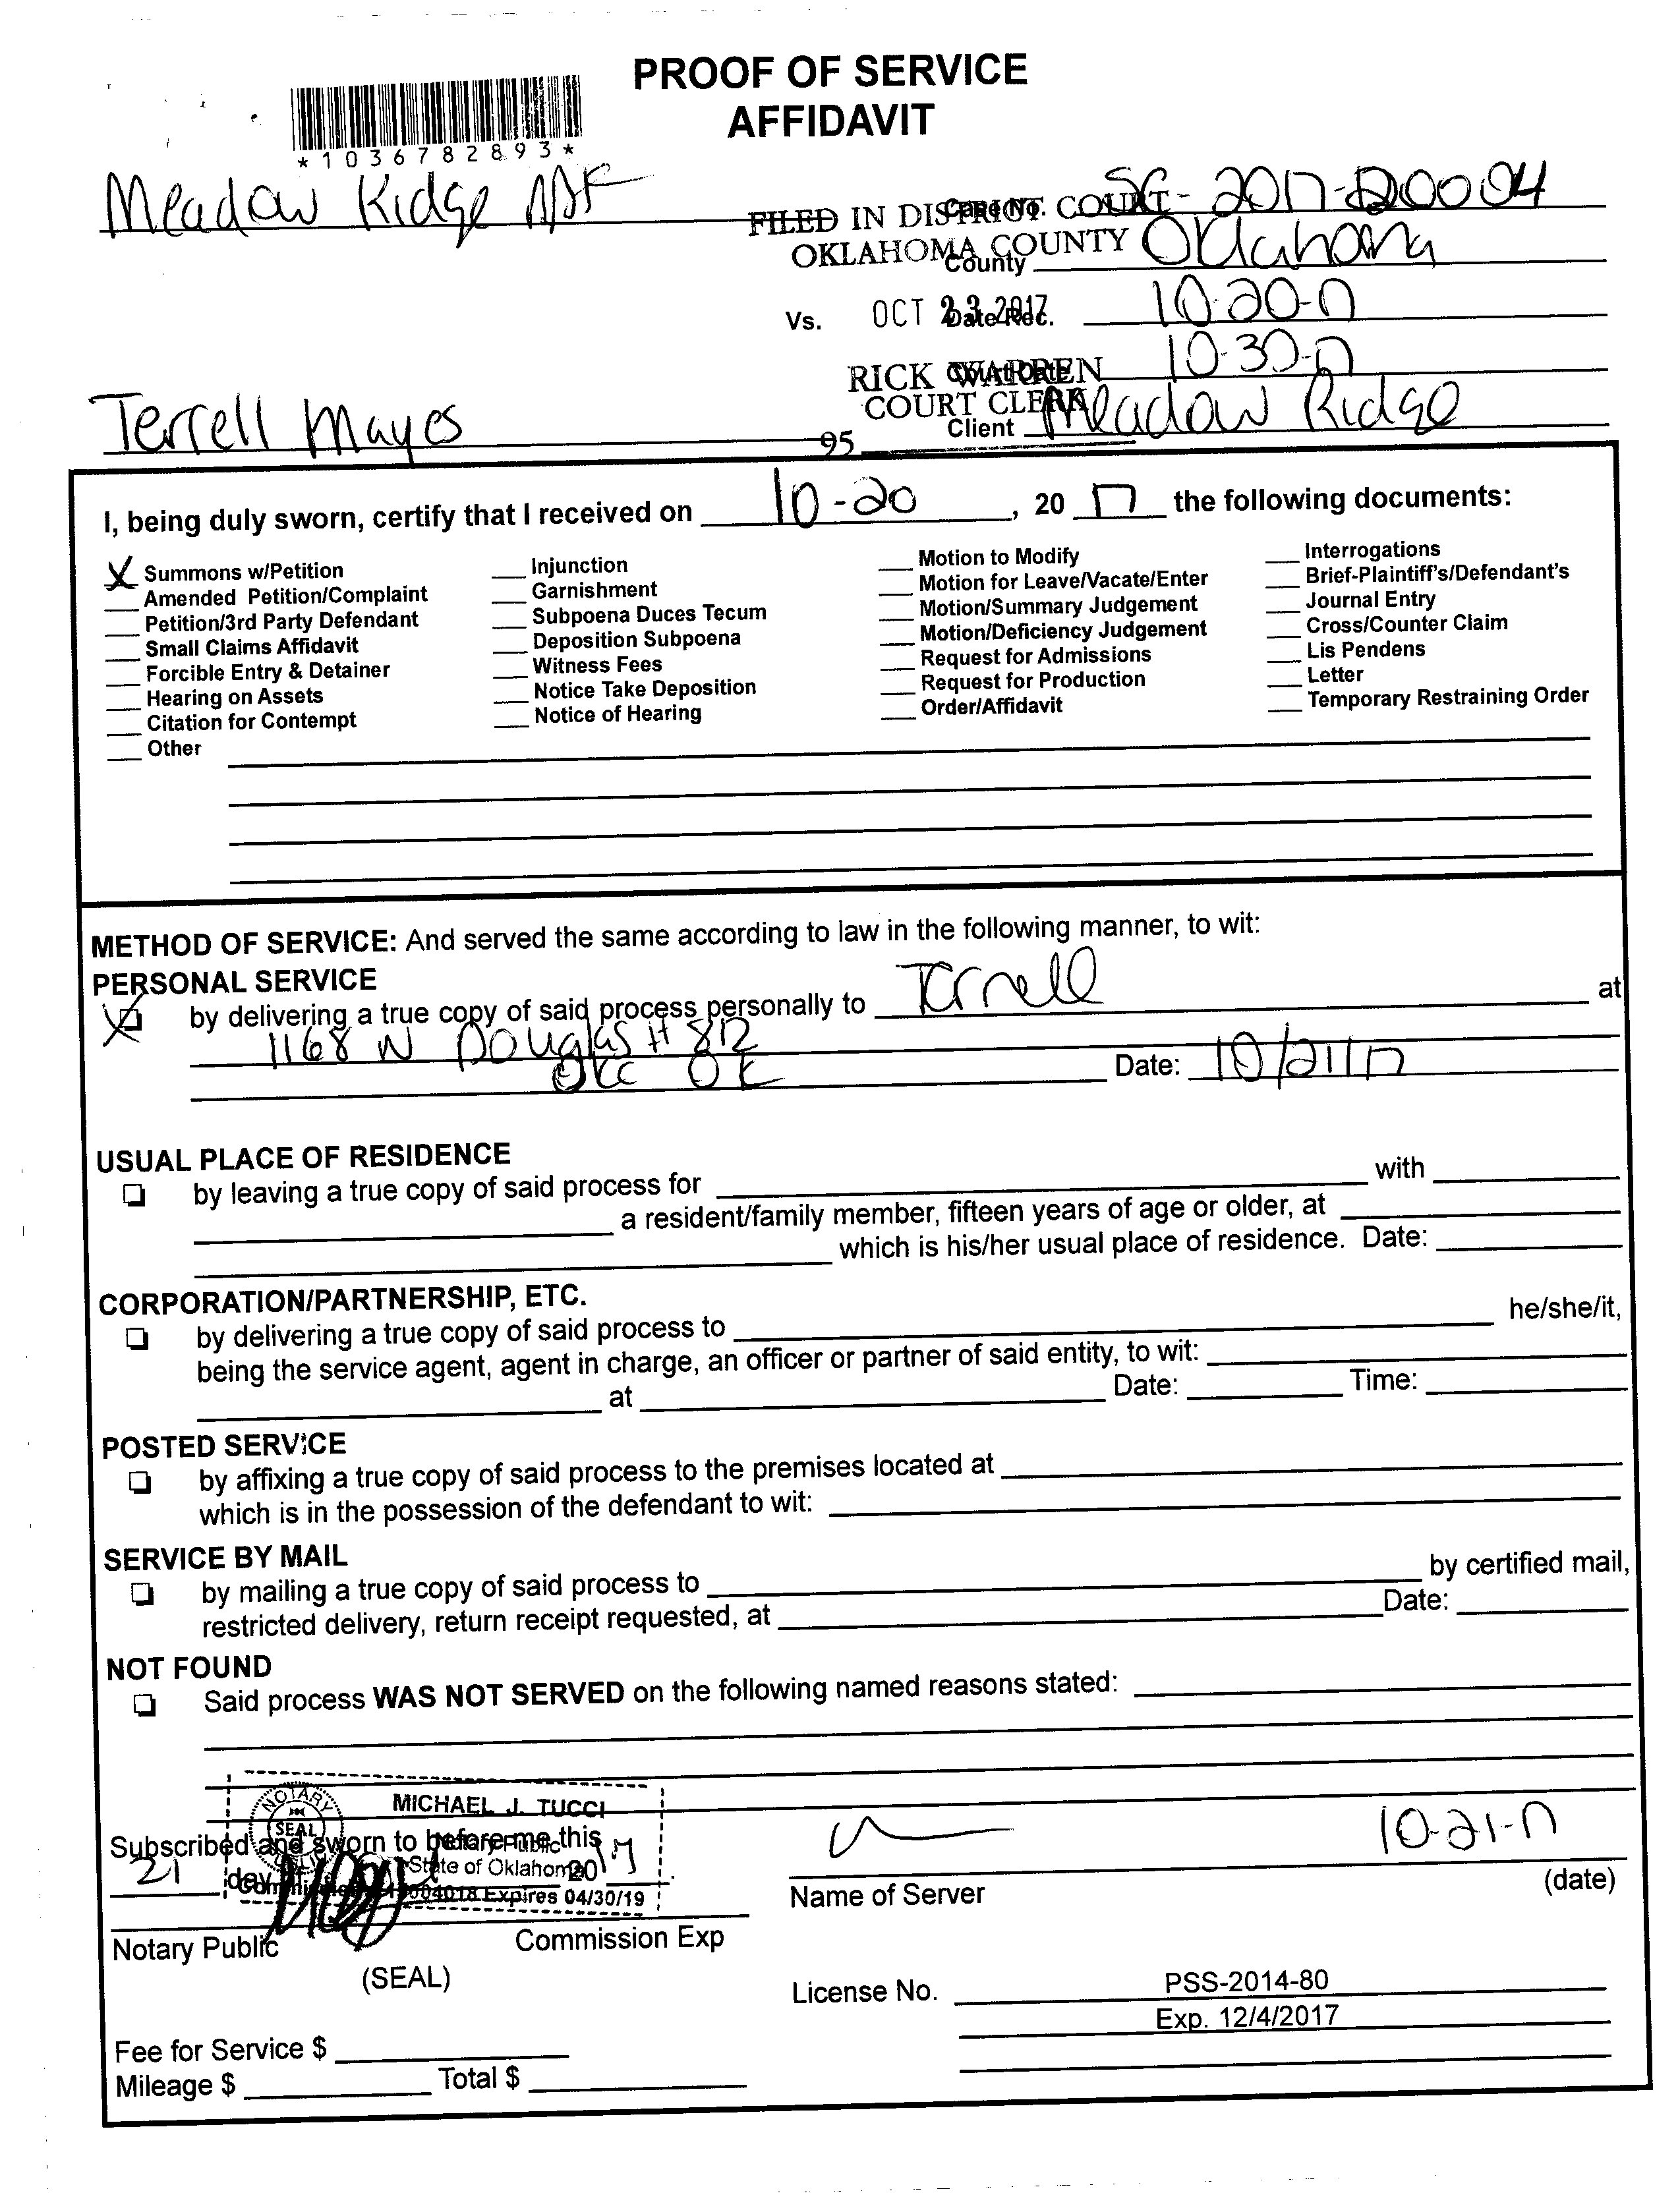 PROOF OF SERVICE
AFFIDAVIT
*1036782893*
Meadow Ridge Apt
Case No. SC-2017-20004
FILED IN DISTRICT COURT
OKLAHOMA COUNTY
County Oklahoma
Vs.
OCT 23 2017
Date Rec. 10-20-17
RICK WARREN
COURT CLERK
Court Date 10-30-17
Terrell Mayes
95
Client Meadow Ridge
I, being duly sworn, certify that I received on 10-20, 20 17 the following documents:
X Summons w/Petition
Amended Petition/Complaint
Petition/3rd Party Defendant
Small Claims Affidavit
Forcible Entry & Detainer
Hearing on Assets
Citation for Contempt
Other
Injunction
Garnishment
Subpoena Duces Tecum
Deposition Subpoena
Witness Fees
Notice Take Deposition
Notice of Hearing
Motion to Modify
Motion for Leave/Vacate/Enter
Motion/Summary Judgement
Motion/Deficiency Judgement
Request for Admissions
Request for Production
Order/Affidavit
Interrogations
Brief-Plaintiff's/Defendant's
Journal Entry
Cross/Counter Claim
Lis Pendens
Letter
Temporary Restraining Order
METHOD OF SERVICE: And served the same according to law in the following manner, to wit:
PERSONAL SERVICE
X by delivering a true copy of said process personally to Terrell at
1168 N Douglas # 812
OKC OK Date: 10/21/17
USUAL PLACE OF RESIDENCE
by leaving a true copy of said process for with
a resident/family member, fifteen years of age or older, at
which is his/her usual place of residence. Date:
CORPORATION/PARTNERSHIP, ETC.
by delivering a true copy of said process to he/she/it,
being the service agent, agent in charge, an officer or partner of said entity, to wit:
at Date: Time:
POSTED SERVICE
by affixing a true copy of said process to the premises located at
which is in the possession of the defendant to wit:
SERVICE BY MAIL
by mailing a true copy of said process to by certified mail,
restricted delivery, return receipt requested, at Date:
NOT FOUND
Said process WAS NOT SERVED on the following named reasons stated:
NOTARY
SEAL
PUBLIC
MICHAEL J. TUCCI
Notary Public
State of Oklahoma
Expires 04/30/19
Subscribed and sworn to before me this
21 day 20 17.
Notary Public Commission Exp
(SEAL)
10-21-17
Name of Server (date)
License No. PSS-2014-80
Exp. 12/4/2017
Fee for Service $
Mileage $ Total $